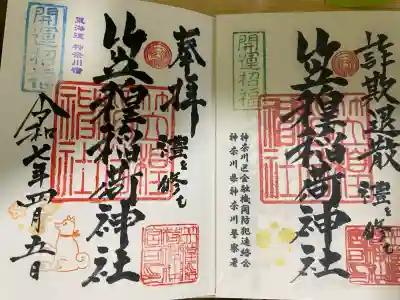 詐欺退散
謹を修む
開運招福
笠䅣稲荷神社
神奈川区金融機関防犯連絡会
神奈川県神奈川警察署
奉拝
謹を修む
開運招福
東海道 神奈川宿
笠䅣稲荷神社
令和七年四月五日